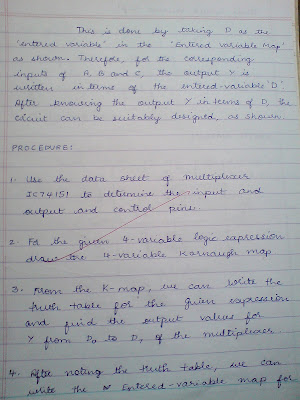 This is done by taking D as the
'entered variable' in the 'Entered variable Map'
as shown. Therefore, for the corresponding
inputs of A, B and C, the output Y is
written in terms of the entered-variable 'D'
After knowing the output Y in terms of D, the
circuit can be suitably designed, as shown.
PROCEDURE:
1. Use the data sheet of multiplexer
IC74151 to determine the input and
output and control pins.
2. For the given 4-variable logic expression
draw the 4-variable Karnaugh map
3. From the K-map, we can write the
truth table for the given expression
and find the output values for
Y from D0 to D7 of the multiplexer.
4. After noting the truth table, we can
write the Entered-variable map for